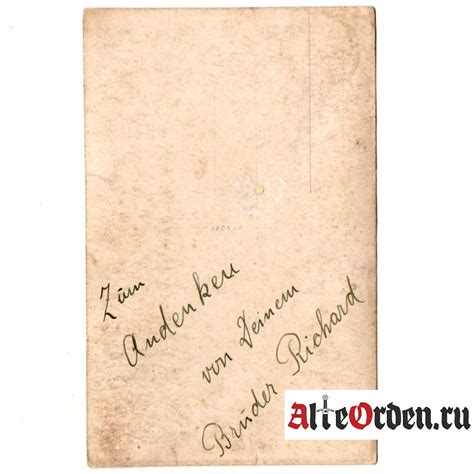 Zum
Andenken
von Deinem
Bruder Richard
AlteOrden.ru